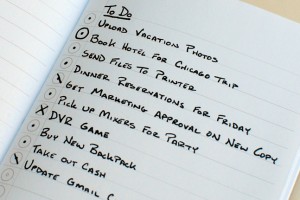 To Do
Upload Vacation Photos
Book Hotel For Chicago Trip
Send Files To Printer
Dinner Reservations For Friday
Get Marketing Approval On New Copy
Pick Up Mixers For Party
DVR Game
Buy New Backpack
Take Out Cash
Update Gmail